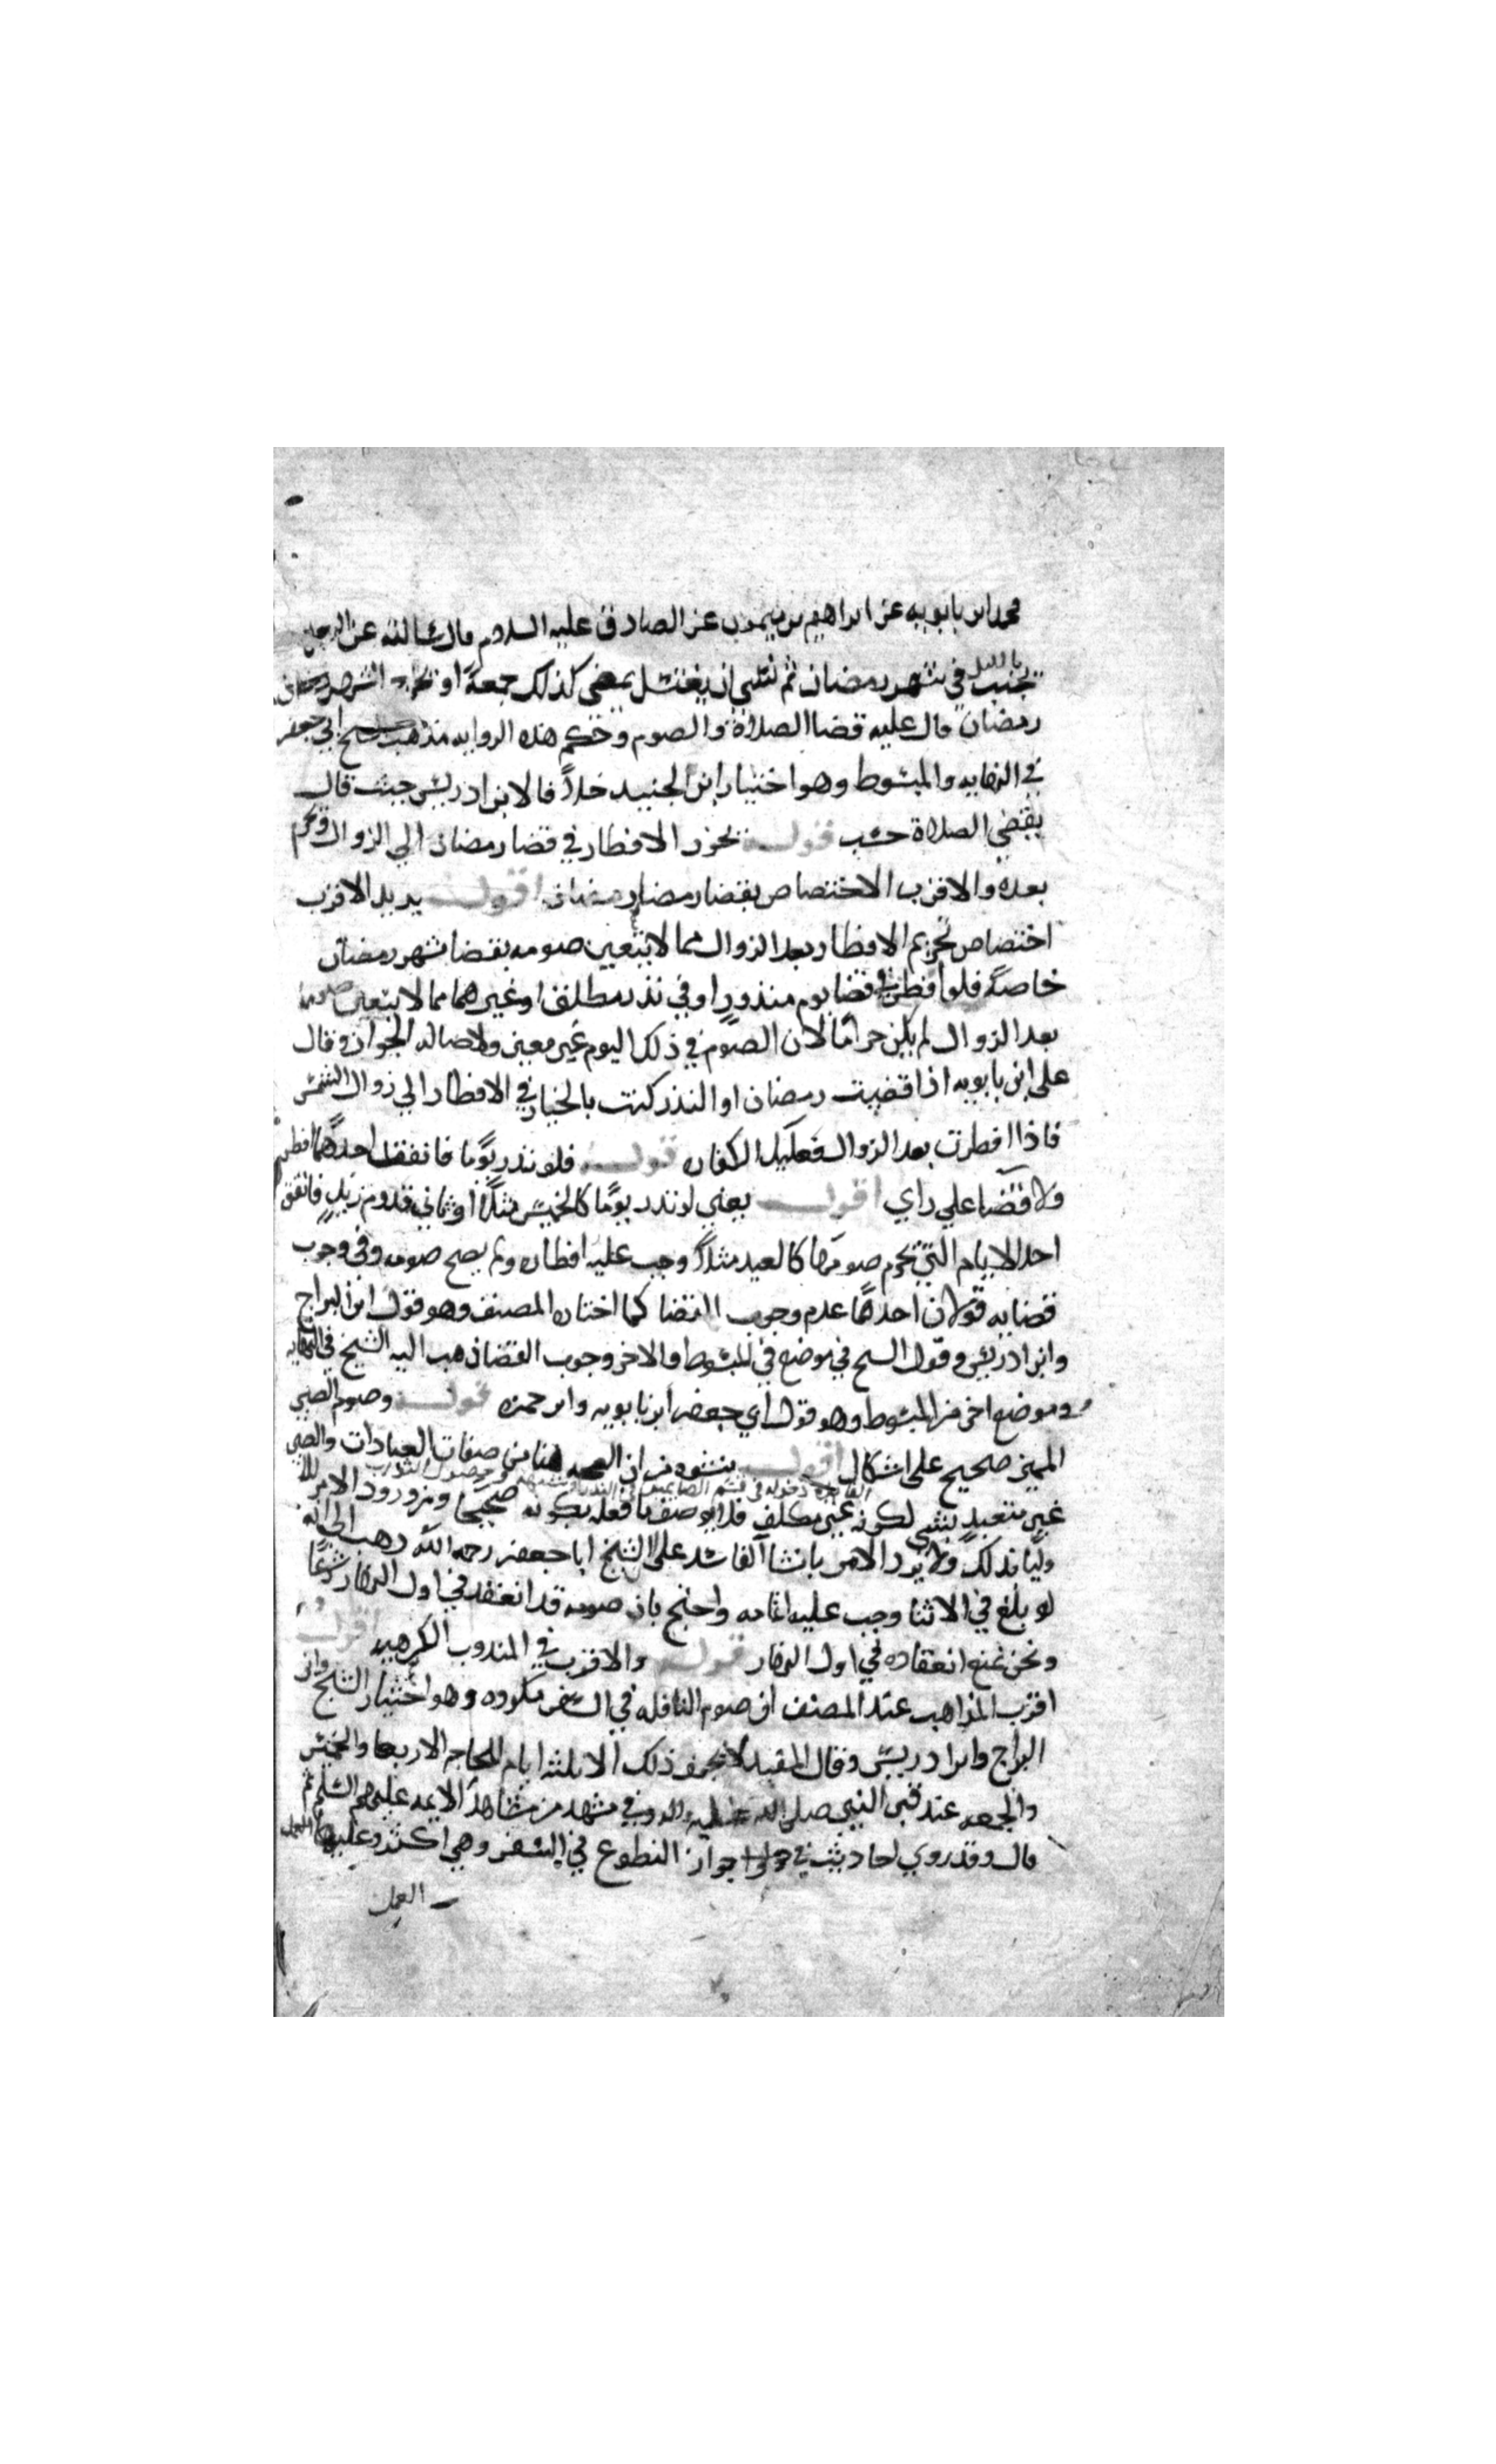 محمد ابن بابويه عن ابراهيم بن ميمون عن الصادق عليه السلام قال سالته عن الرجل
يجنب بالليل في شهر رمضان ثم نسي ان يغتسل يمضي كذلك جمعة او يخرج الشهر
رمضان قال عليه قضا الصلاة والصوم وحكم هذه الروايه مذهب الشيخ ابي جعفر
في النهايه والمبسوط وهو اختيار ابن الجنيد خلافا لابن ادريس حيث قال
يقضي الصلاة حسب قوله يجوز الافطار في قضا رمضان الي الزوال ويحرم
بعده والاقرب الاختصاص بقضا رمضان اقول يريد الاقرب
اختصاص تحريم الافطار بعد الزوال مما لا يتعين صومه بقضا شهر رمضان
خاصة فلو افطر في قضا يوم منذور او في نذر مطلق او غيرهما مما لا يتعين صومه
بعد الزوال لم يكن حراما لان الصوم في ذلك اليوم غير معين ولاصاله الجواز وقال
علي ابن بابويه اذا قضيت رمضان او النذر كنت بالخيار في الافطار الي زوال الشمس
فاذا افطرت بعد الزوال فعليك الكفاره قوله فلو نذر يوما فاتفق احدهما افطر
ولا قضا علي راي اقول يعني لو نذر يوما كالخميس مثلا او ثاني قدوم زيد فاتفق
احد الايام التي يحرم صومها كالعيد مثلا وجب عليه افطاره ولم يصح صومه وفي وجوب
قضايه قولان احدهما عدم وجوب القضا كما اختاره المصنف وهو قول ابن البراج
وابن ادريس وقول الشيخ في موضع في المبسوط والاخر وجوب القضا ذهب اليه الشيخ في النهايه
وموضع اخر من المبسوط وهو قول ابي جعفر ابن بابويه وابن حمزه قوله وصوم الصبي
المميز صحيح علي اشكال اقول ينشوه من ان الصحه هنا من صفات العبادات والصبي
غير متعبد بشي لكونه غير مكلف فلا يوصف ما فعله بكونه صحيحا ومن ورود الامر للا
وليا بذلك ولا يرد الامر بانشا الفاسد علي ان الشيخ ابا جعفر رحمه الله ذهب الي انه
لو بلغ في الاثنا وجب عليه اتمامه واحتج بان صومه قد انعقد في اول النهار شرعا
ونحن نمنع انعقاده في اول النهار قوله والاقرب في المندوب الكراهيه اقول
اقرب المذاهب عند المصنف ان صوم النافله في السفر مكروه وهو اختيار الشيخ وابن
البراج وابن ادريس وقال المفيد لا يجوز ذلك الا ثلثه ايام للحاجه الاربعا والخميس
والجمعه عند قبر النبي صلي الله عليه واله وفي مشهد من مشاهد الايمه عليهم السلم ثم
قال وقد روي احاديث في جواز التطوع في السفر وهي اكثر وعليها
العمل